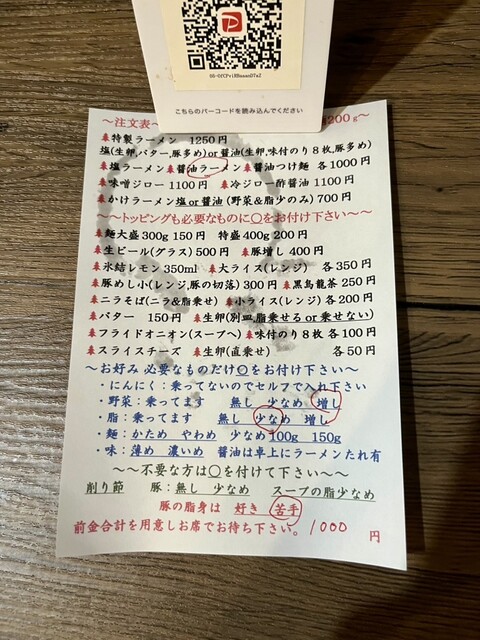 こちらのバーコードを読み込んでください
～注文表～ 200g～
特製ラーメン 1250円
塩(生卵,バター,豚多め)or醤油(生卵,味付のり8枚,豚多め)
塩ラーメン 醤油ラーメン 醤油つけ麺 各1000円
味噌ジロー1100円 冷ジロー酢醤油1100円
かけラーメン塩or醤油(野菜&脂少のみ)700円
～～トッピングも必要なものに〇をお付け下さい～～
麺大盛300g150円 特盛400g200円
生ビール(グラス)500円 豚増し400円
氷結レモン350ml 大ライス(レンジ) 各350円
豚めし小(レンジ,豚の切落)300円 黒烏龍茶250円
ニラそば(ニラ&脂乗せ) 小ライス(レンジ)各200円
バター 150円 生卵(別皿,脂乗せるor乗せない)
フライドオニオン(スープへ) 味付のり8枚各100円
スライスチーズ 生卵(直乗せ) 各50円
～お好み 必要なものだけ〇をお付け下さい～
・にんにく：乗ってないのでセルフで入れ下さい
・野菜：乗ってます 無し 少なめ 増し
・脂：乗ってます 無し 少なめ 増し
・麺：かため やわめ 少なめ100g 150g
・味：薄め 濃いめ 醤油は卓上にラーメンたれ有
～～不要な方は〇を付けて下さい～～
削り節 豚：無し 少なめ スープの脂少なめ
豚の脂身は 好き 苦手
前金合計を用意しお席でお待ち下さい。1000 円